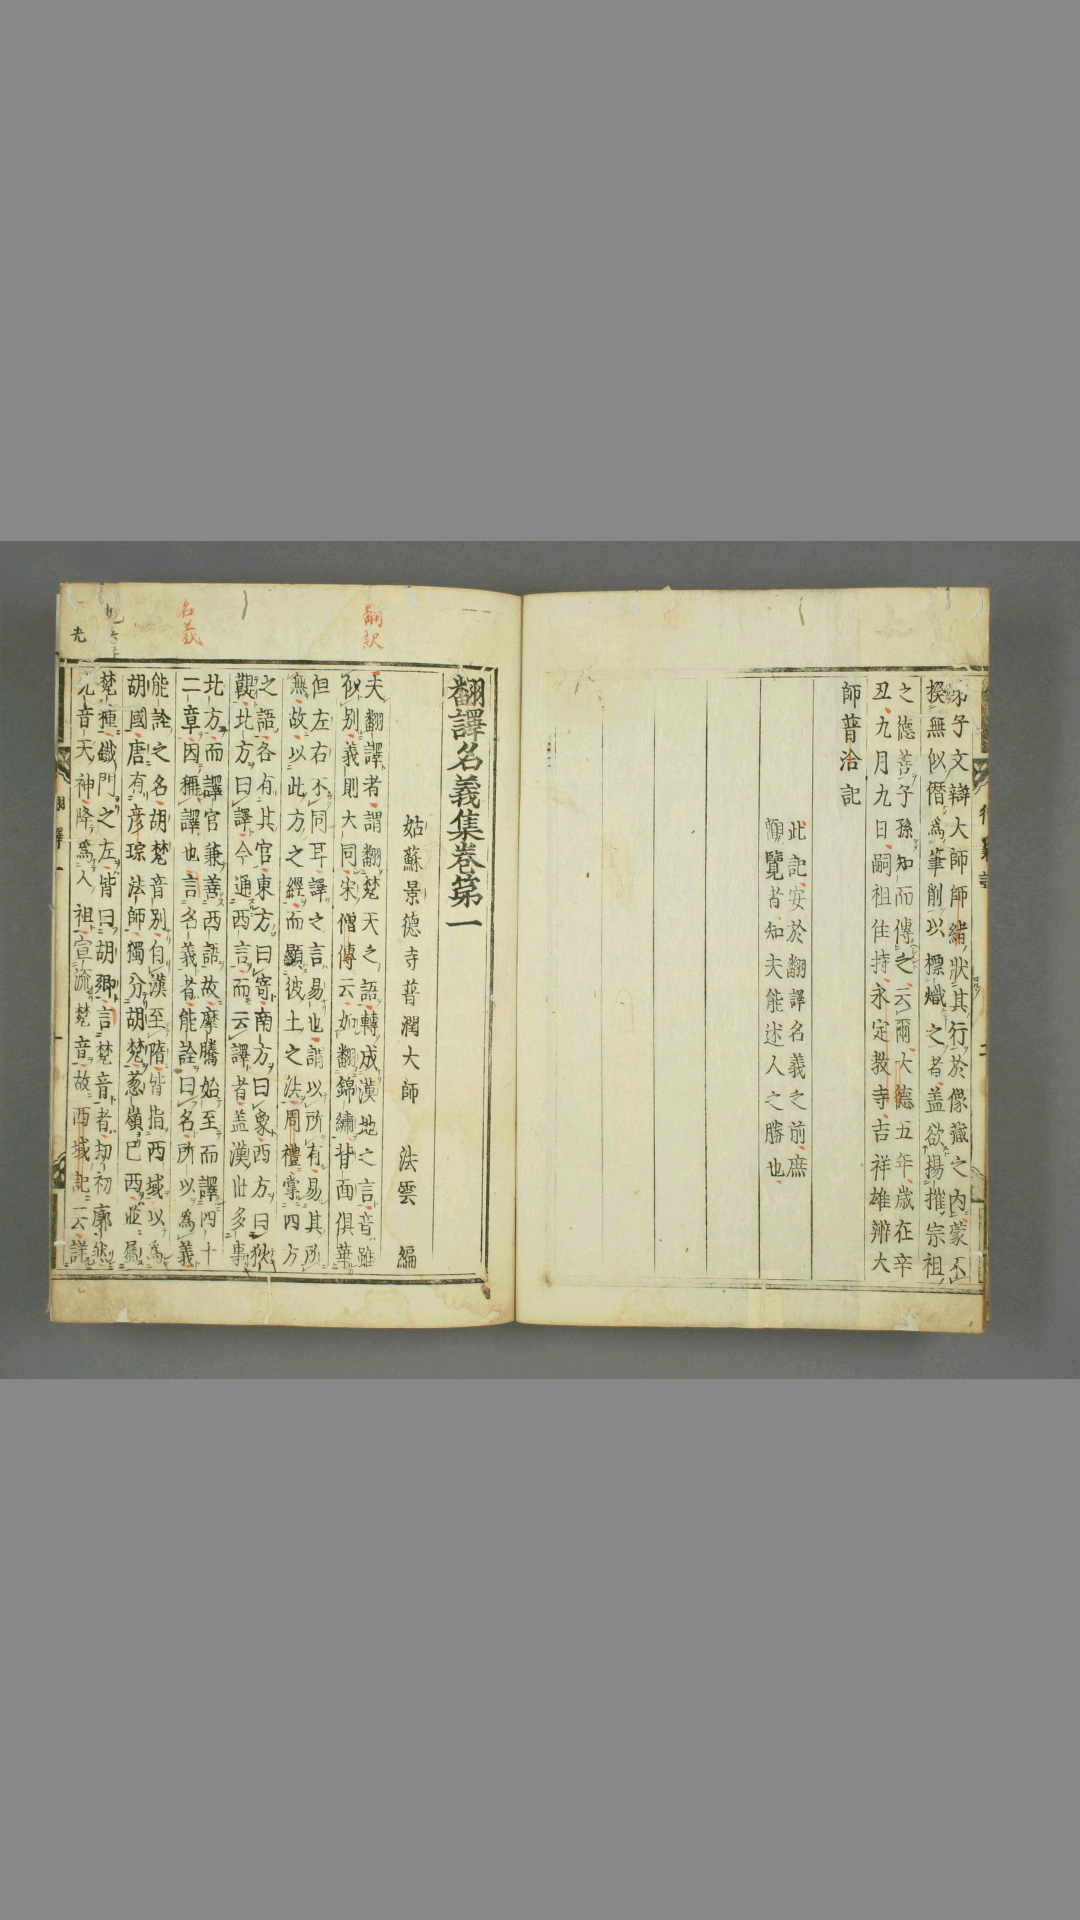 弟子文辯大師師緒狀其行於像藏之內蒙不
揆無似僭爲筆削以標熾之者盖欲揚摧宗祖
之德善子孫知而傳之云爾大德五年歲在辛
丑九月九日嗣祖住持永定教寺吉祥雄辨大
師普洽記
此記安於翻譯名義之前庶
覽者知夫能述人之勝也
翻訳
名義
翻譯名義集卷第一
姑蘇景德寺普潤大師 法雲 編
夫翻譯者謂翻梵天之語轉成漢地之言音雖
似别義則大同宋僧傳云如翻錦繡背面俱華
但左右不同耳譯之言易也謂以所有易其所
無故以此方之經而顯彼土之法周禮掌四方
之語各有其官東方曰寄南方曰象西方曰狄
鞮北方曰譯今通西言而云譯者盖漢世多事
北方而譯官兼善西語故摩騰始至而譯四十
二章因稱譯也言名義者能詮曰名所以爲義
能詮之名胡梵音别自漢至隋皆指西域以爲
胡國唐有彦琮法師獨分胡梵葱嶺已西並屬
梵種鐵門之左皆曰胡鄉言梵音者劫初廓然
光音天神降爲人祖宣流梵音故西域記云詳